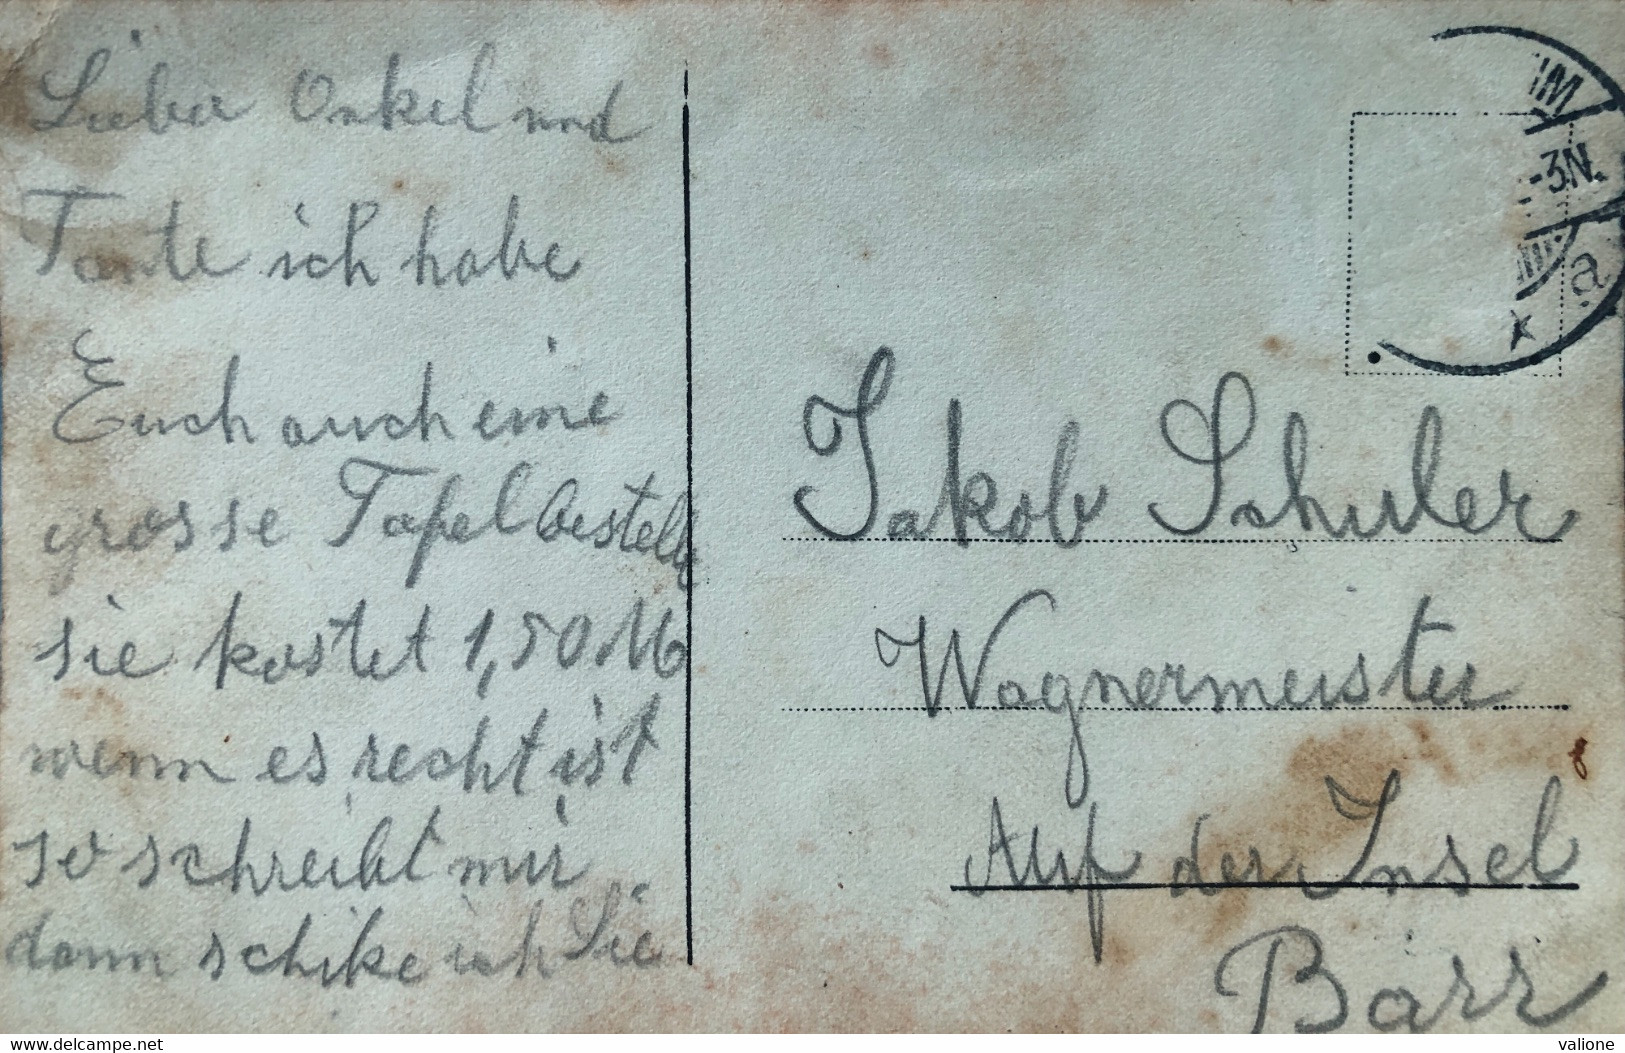 Lieber Onkel und
Tante ich habe
Euch auch eine
grosse Tafel bestellt
sie kostet 1,50 M
wenn es recht ist
so schreibt mir
dann schike ich Sie
IM
-3N.
a
Jakob Schuler
Wagnermeister
Auf der Insel
Barr
delcampe.net
valione